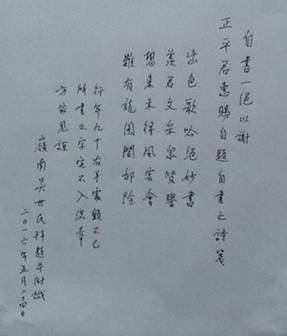 自書一絕以謝
正平君惠賜自題自書之詩箋
出色歌吟絕妙書
羨君文采眾贊譽
想來未歸風雲會
難有龍圖閣部除
行年九十右手震顫不已
所書之字定不入法章
方家見諒
嶺南吳世民拜題並附識
二〇一六年五月二十四日